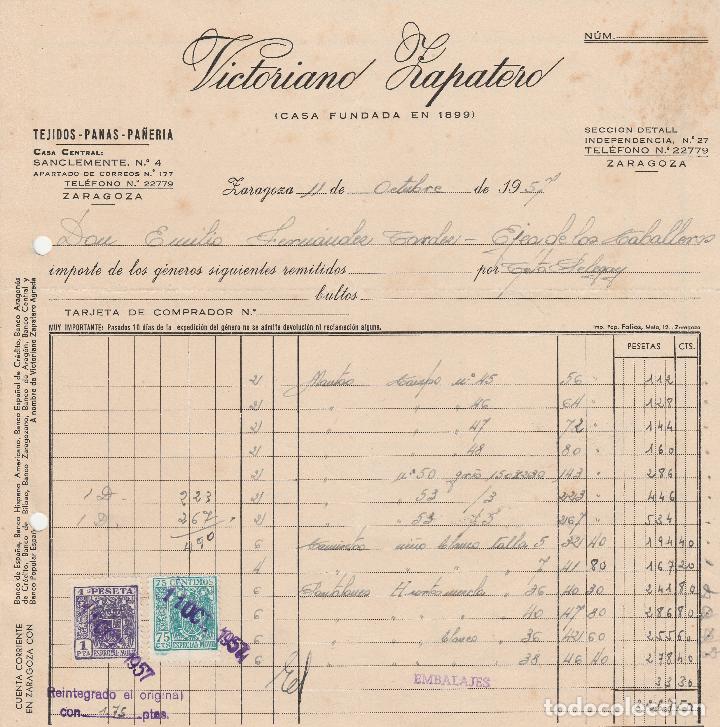 NÚM.
Victoriano Zapatero
(CASA FUNDADA EN 1899)
TEJIDOS-PANAS-PAÑERIA
CASA CENTRAL:
SANCLEMENTE, N.º 4
APARTADO DE CORREOS N.º 177
TELÉFONO N.º 22779
ZARAGOZA
SECCION DETALL
INDEPENDENCIA, N.º 27
TELÉFONO N.º 22779
ZARAGOZA
Zaragoza 11 de Octubre de 1957
Don Emilio Fernández - Ejea de los Caballeros
importe de los géneros siguientes remitidos por
bultos
TARJETA DE COMPRADOR N.º
MUY IMPORTANTE: Pasados 10 días de la expedición del género no se admite devolución ni reclamación alguna.
Imp. Pap. Zaragoza
PESETAS CTS.
2/ Mantas nº 45 56 112
2/ " " " 46 64 128
2/ " " " 47 72 144
2/ " " " 48 80 160
2/ " nº 50 143 286
1 D. 223 2/ " 53 223 446
1 D. 267 2/ " 53 267 534
490 6 Camisetas niño blanco talla 5 32 40 194 40
4 " " " 7 41 80 167 20
6 36 40 30 241 80
6 " 40 47 80 286 80
6 " blanco 36 42 60 255 60
6 " " 38 46 40 278 40
EMBALAJES 33 30
1 PESETA
1 PTA ESPECIAL MOVIL
75 CENTIMOS
75 CTS ESPECIAL MOVIL
11 OCT. 1957
11 OCT. 1957
Reintegrado el original
con 1.75 ptas.
CUENTA CORRIENTE
EN ZARAGOZA CON
Banco de España, Banco Hispano Americano, Banco Español de Crédito, Banco Aragonés
de Crédito, Banco de Bilbao, Banco Zaragozano, Banco de Aragón, Banco Central y
Banco Popular Español
A nombre de Victoriano Zapatero Agreda
todocoleccion.net